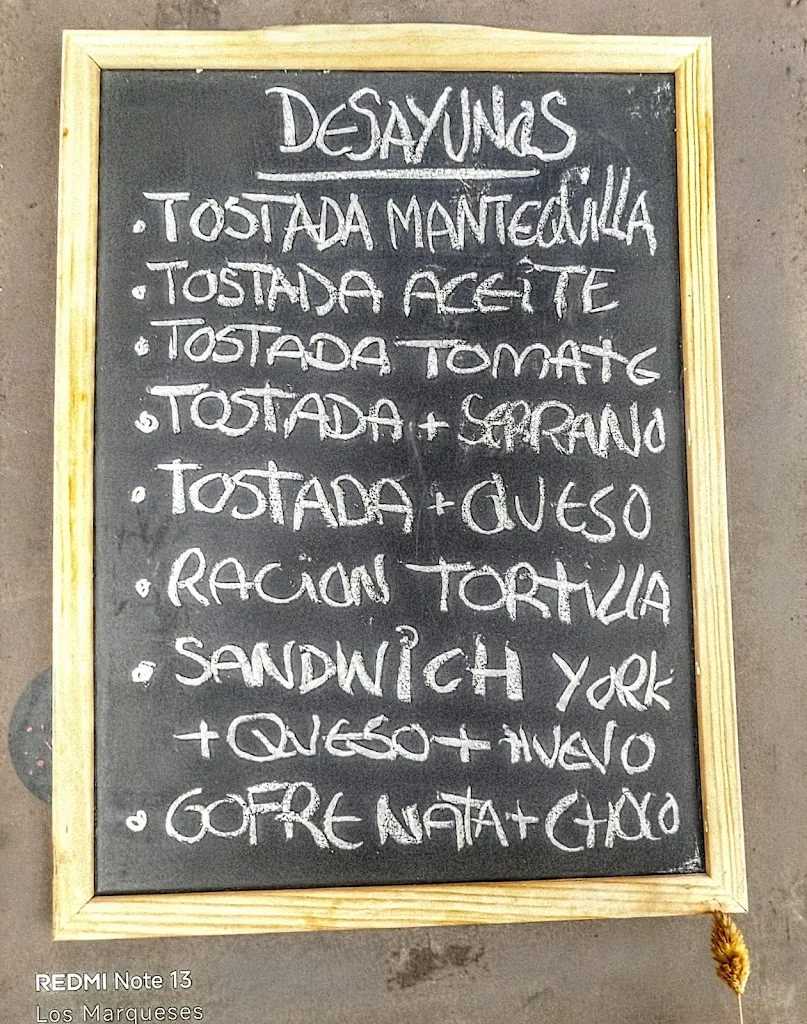 DESAYUNOS
• TOSTADA MANTEQUILLA
• TOSTADA ACEITE
• TOSTADA TOMATE
• TOSTADA + SERRANO
• TOSTADA + QUESO
• RACION TORTILLA
• SANDWICH YORK
+ QUESO + HUEVO
• GOFRE NATA + CHOCO
REDMI Note 13
Los Marqueses